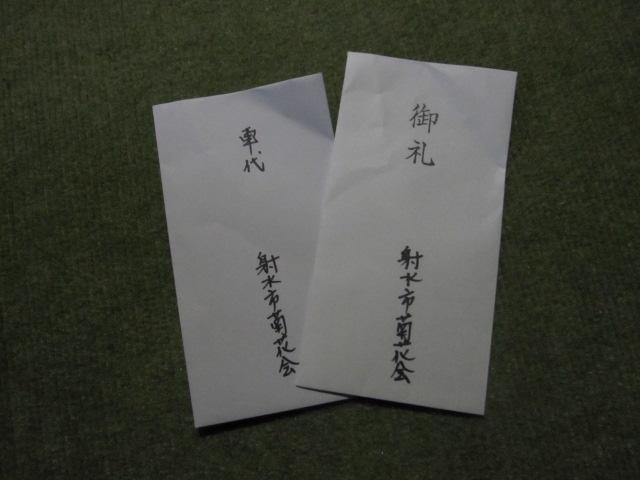 車代
射水市菊花会
御礼
射水市菊花会